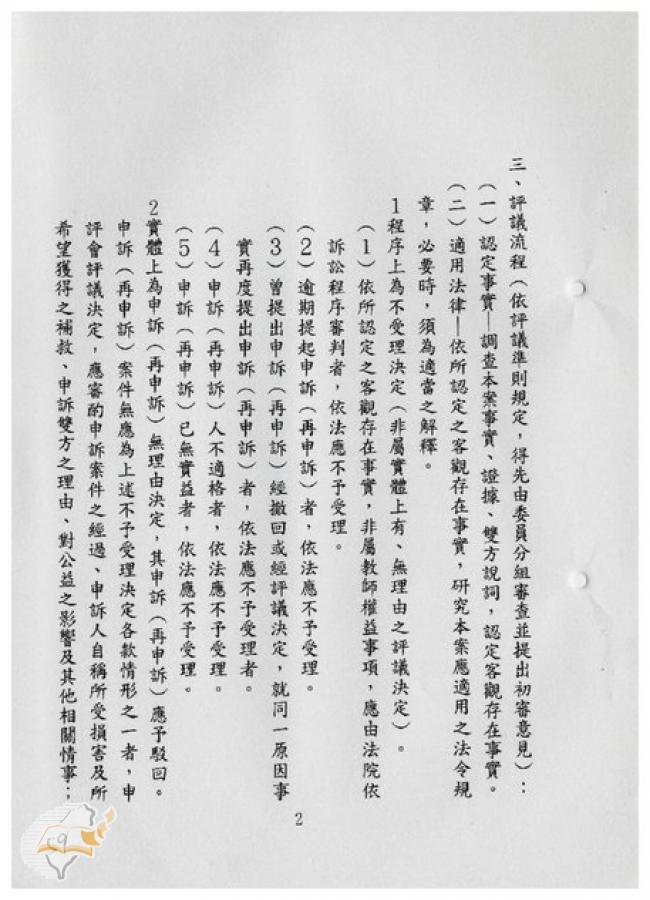 三、評議流程(依評議準則規定，得先由委員分組審查並提出初審意見)：
(一)認定事實—調查本案事實、證據、雙方說詞，認定客觀存在事實。
(二)適用法律—依所認定之客觀存在事實，研究本案應適用之法令規
章，必要時，須為適當之解釋。
1程序上為不受理決定(非屬實體上有、無理由之評議決定)。
(1)依所認定之客觀存在事實，非屬教師權益事項，應由法院依
訴訟程序審判者，依法應不予受理。
(2)逾期提起申訴(再申訴)者，依法應不予受理。
(3)曾提出申訴(再申訴)經撤回或經評議決定，就同一原因事
實再度提出申訴(再申訴)者，依法應不予受理者。
(4)申訴(再申訴)人不適格者，依法應不予受理。
(5)申訴(再申訴)已無實益者，依法應不予受理。
2實體上為申訴(再申訴)無理由決定，其申訴(再申訴)應予駁回。
申訴(再申訴)案件無應為上述不予受理決定各款情形之一者，申
評會評議決定，應審酌申訴案件之經過、申訴人自稱所受損害及所
希望獲得之補救、申訴雙方之理由、對公益之影響及其他相關情事；
2
59